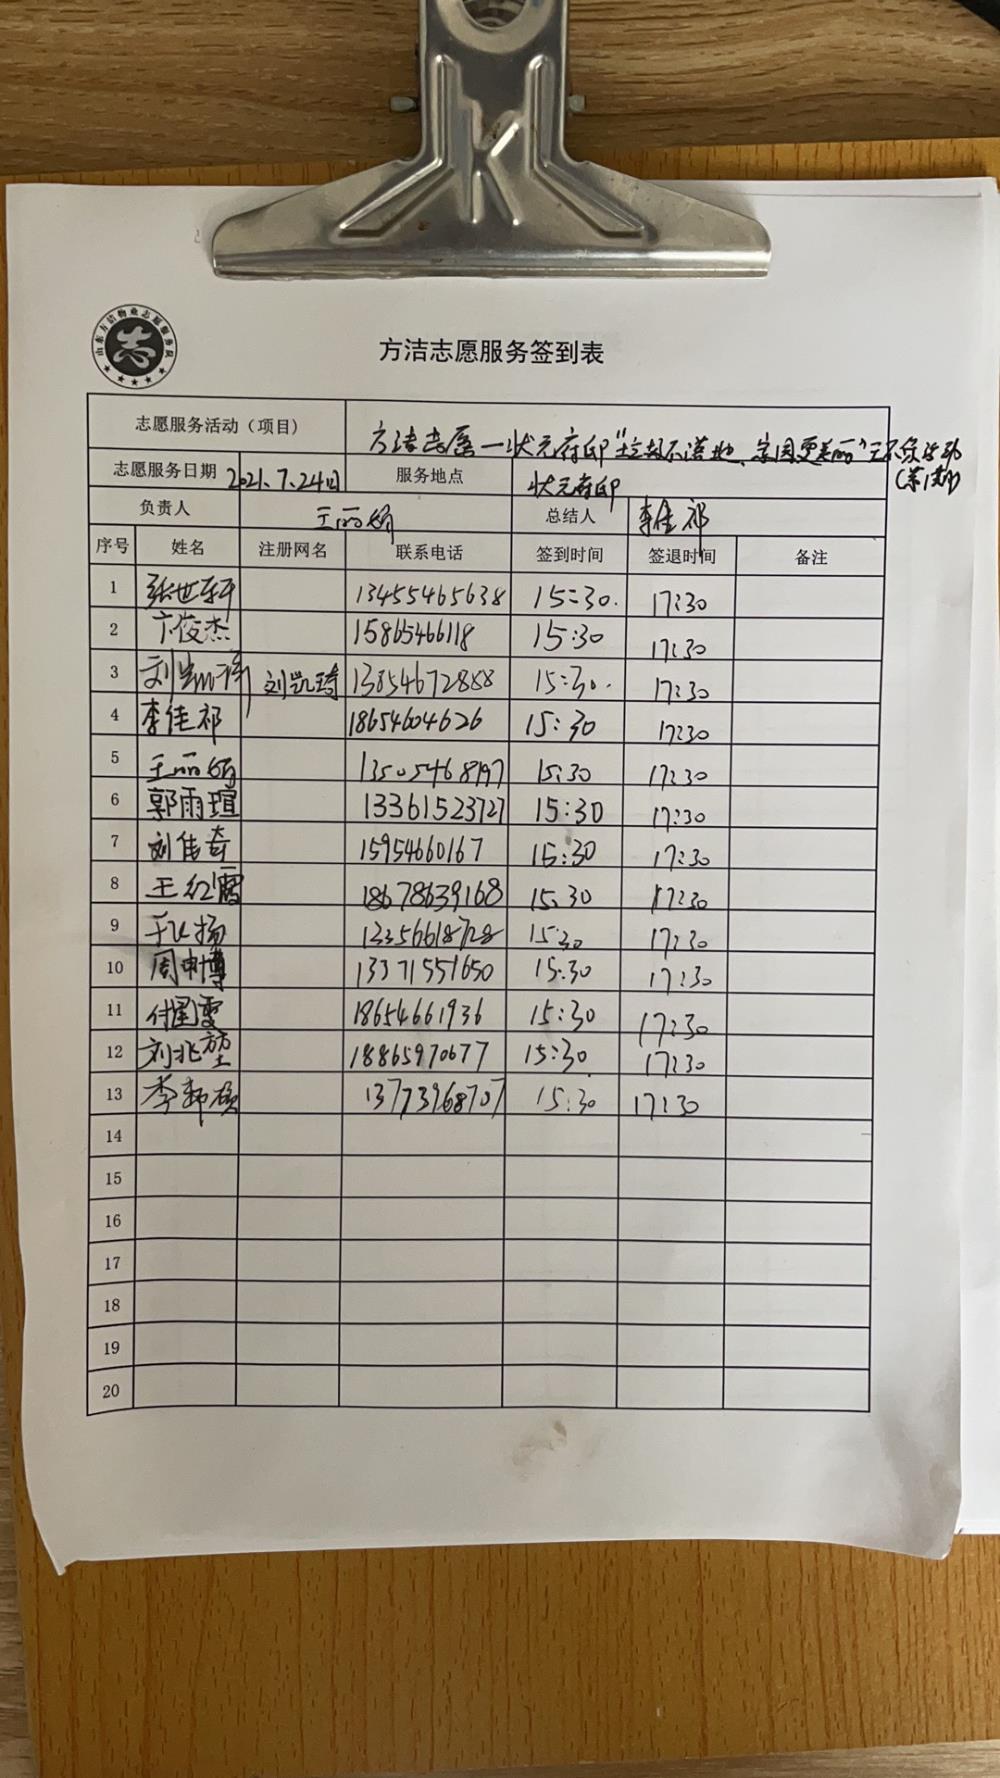 山东方洁物业志愿服务队
志
方洁志愿服务签到表
志愿服务活动（项目） 方洁志愿—状元府邸"垃圾不落地、家园更美丽"
志愿服务日期 2021.7.24日 服务地点 状元府邸
负责人 王丽娇 总结人 李佳祁
序号 姓名 注册网名 联系电话 签到时间 签退时间 备注
1 张世轩 13455465638 15:30. 17:30
2 卞俊杰 15865466118 15:30 17:30
3 刘凯琦 13854672888 15:30. 17:30
4 李佳祁 18654604626 15:30 17:30
5 王丽娇 13505468197 15:30 17:30
6 郭雨瑄 13361523727 15:30 17:30
7 刘佳奇 15954660167 15:30 17:30
8 王红霞 18678639168 15:30 17:30
9 扬 13356618728 15:30 17:30
10 周申博 13371551650 15:30 17:30
11 付 雯 18654661936 15:30 17:30
12 刘兆堃 18865970677 15:30 17:30
13 李 硕 13773968707 15:30 17:30
14
15
16
17
18
19
20